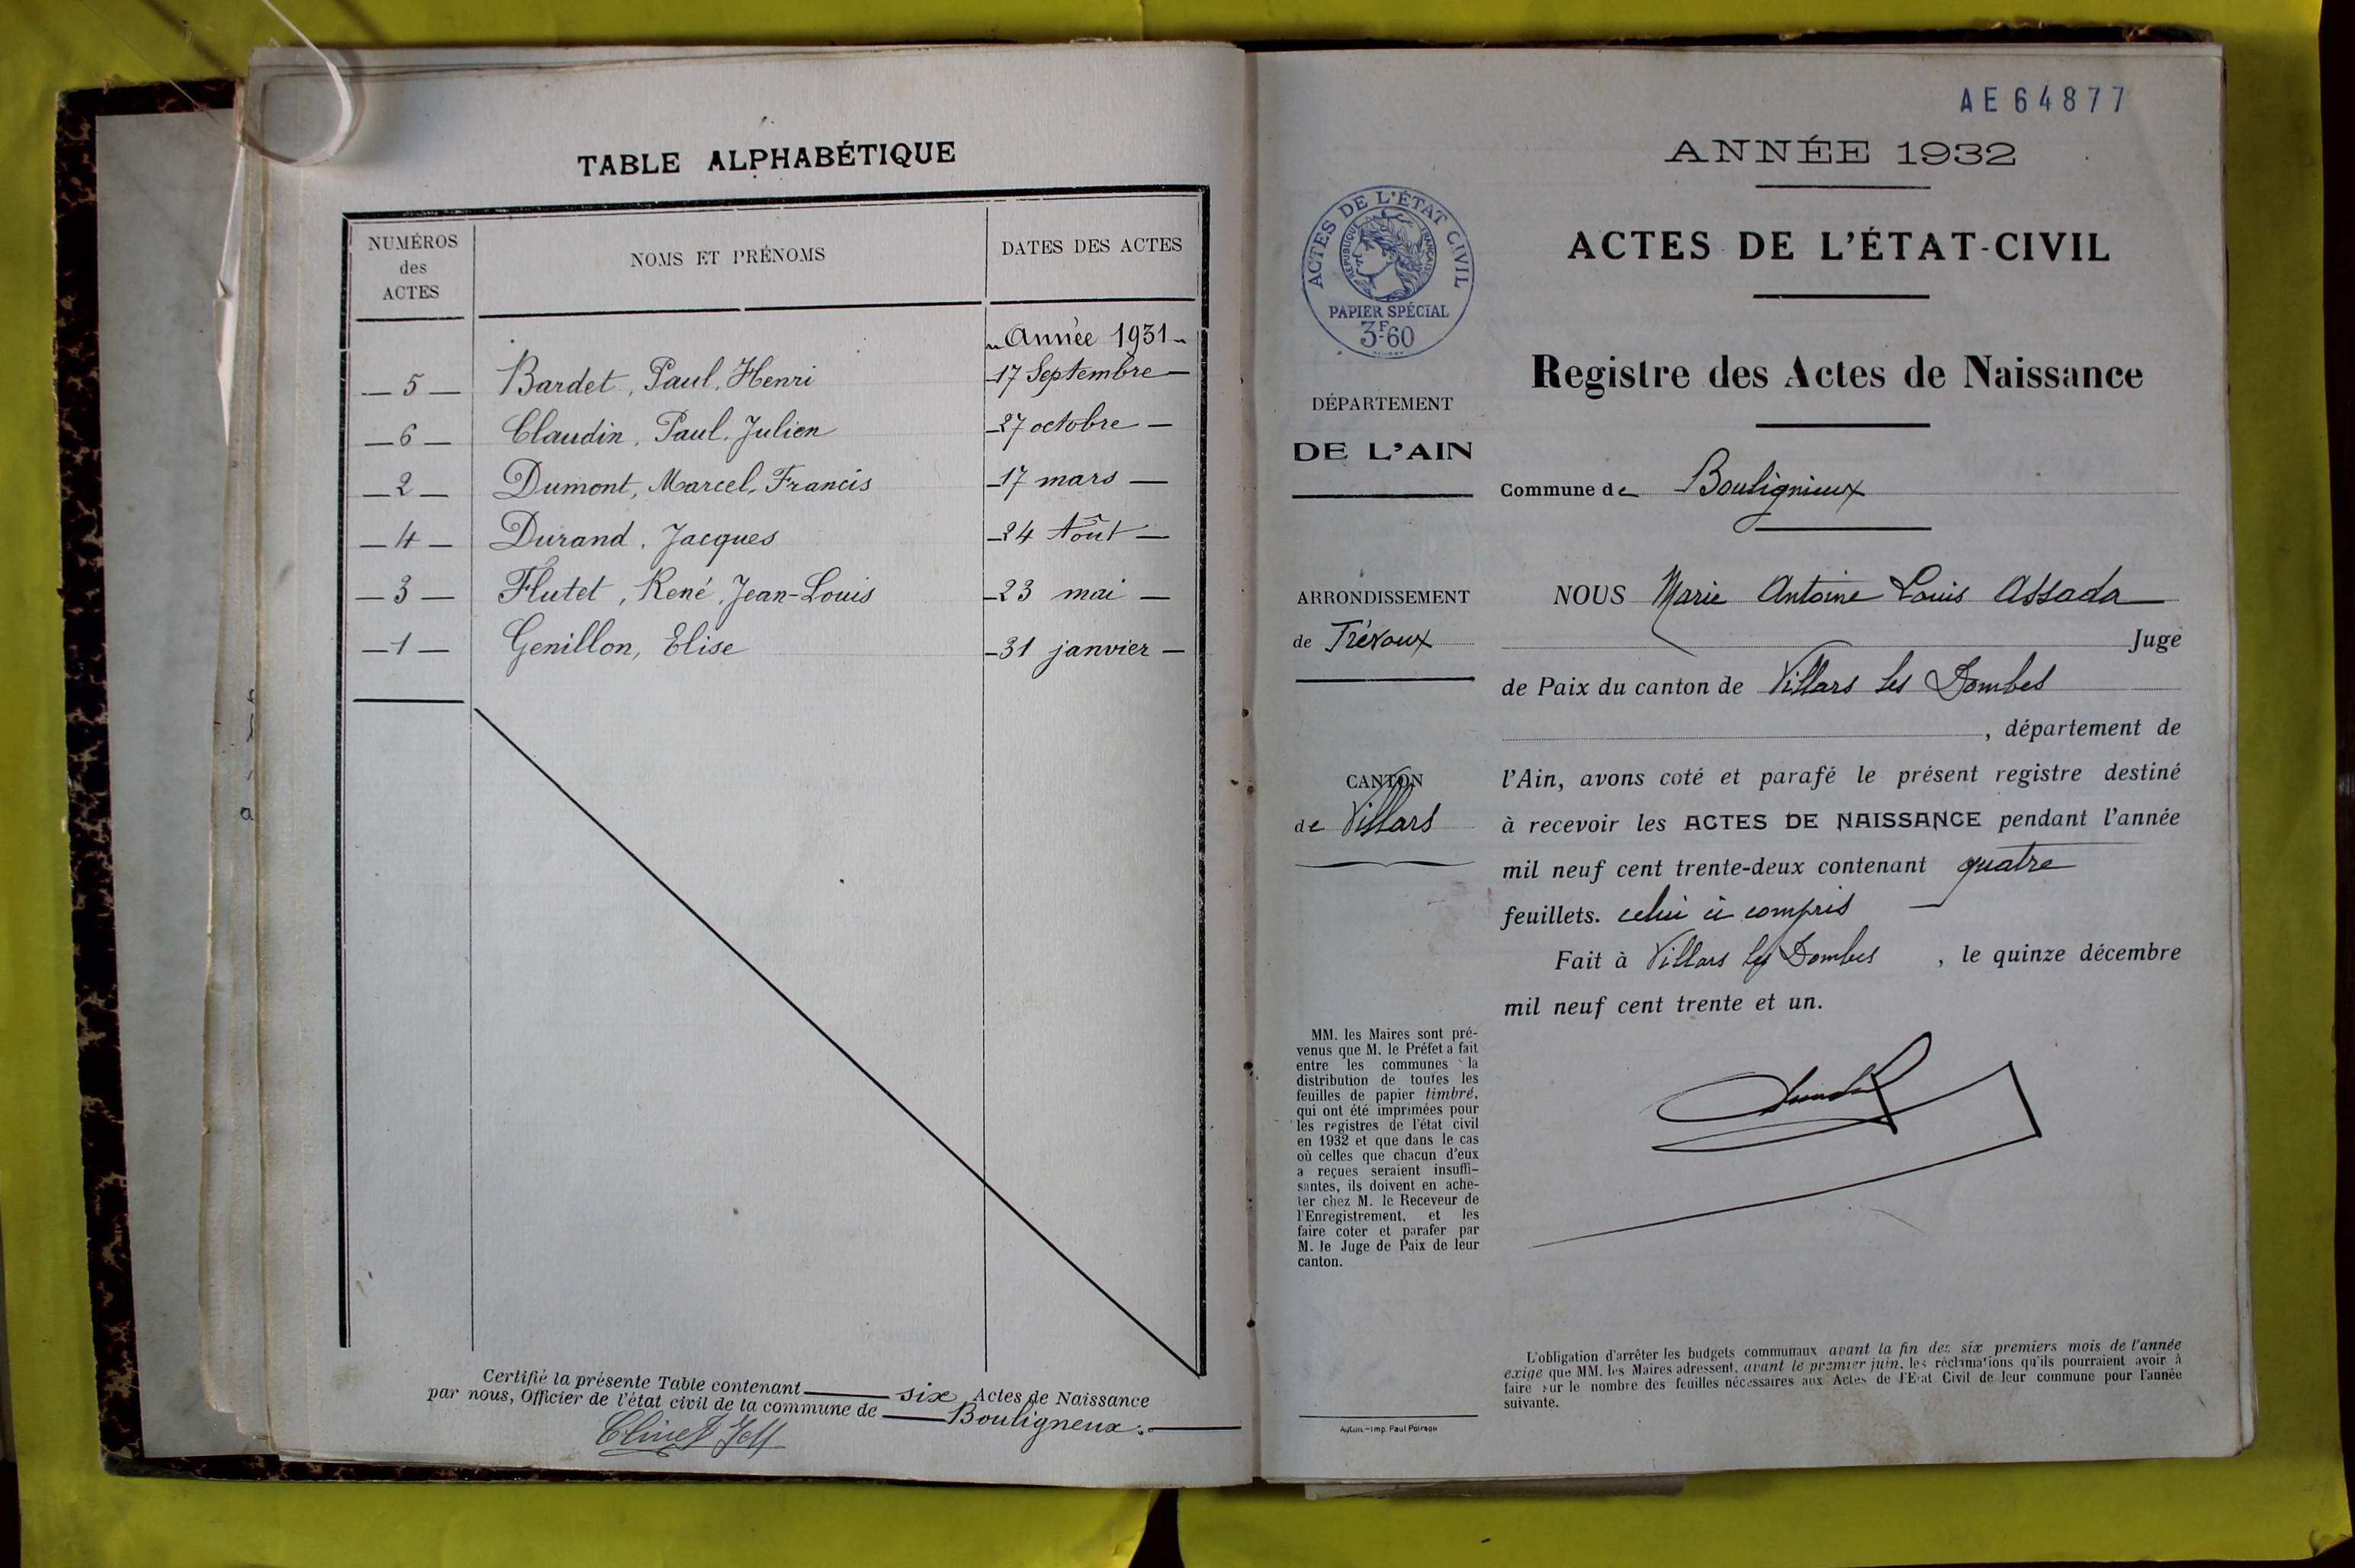 TABLE ALPHABÉTIQUE
NUMÉROS
des
ACTES
NOMS ET PRÉNOMS
DATES DES ACTES
Année 1931
— 5 — Bardet, Paul, Henri — 17 Septembre —
— 6 — Claudin, Paul, Julien — 27 octobre —
— 2 — Dumont, Marcel, Francis — 17 mars —
— 4 — Durand, Jacques — 24 Août —
— 3 — Flutet, René, Jean-Louis — 23 mai —
— 1 — Genillon, Elise — 31 janvier —
Certifié la présente Table contenant six Actes de Naissance
par nous, Officier de l'état civil de la commune de Bouligneux.
AE64877
ANNÉE 1932
ACTES DE L'ÉTAT CIVIL
RÉPUBLIQUE FRANÇAISE
PAPIER SPÉCIAL
3F60
ACTES DE L'ÉTAT-CIVIL
Registre des Actes de Naissance
DÉPARTEMENT
DE L'AIN
Commune de Boulignieux
ARRONDISSEMENT
de Trévoux
CANTON
de Villars
NOUS Marie Antoine Louis Assada
Juge
de Paix du canton de Villars les Dombes
, département de
l'Ain, avons coté et parafé le présent registre destiné
à recevoir les ACTES DE NAISSANCE pendant l'année
mil neuf cent trente-deux contenant quatre
feuillets. celui ci compris
Fait à Villars les Dombes , le quinze décembre
mil neuf cent trente et un.
MM. les Maires sont pré-
venus que M. le Préfet a fait
entre les communes la
distribution de toutes les
feuilles de papier timbré,
qui ont été imprimées pour
les registres de l'état civil
en 1932 et que dans le cas
où celles que chacun d'eux
a reçues seraient insuffi-
santes, ils doivent en ache-
ter chez M. le Receveur de
l'Enregistrement, et les
faire coter et parafer par
M. le Juge de Paix de leur
canton.
L'obligation d'arrêter les budgets communaux avant la fin des six premiers mois de l'année
exige que MM. les Maires adressent, avant le premier juin, les réclamations qu'ils pourraient avoir à
faire sur le nombre des feuilles nécessaires aux Actes de l'Etat Civil de leur commune pour l'année
suivante.
Autun.—Imp. Paul Poirson